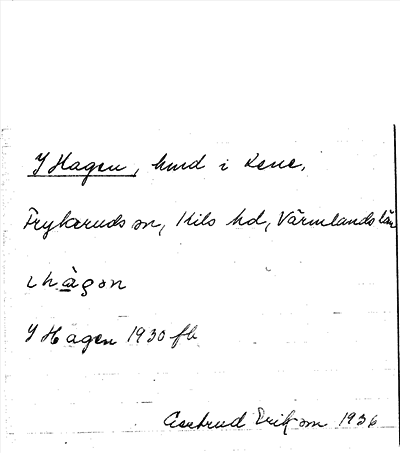 Y Hagen, hmd i Kene,
Frykeruds sn, Kils hd, Värmlands län
ı hàgɷn
Y Hagen 1930 fb
Gertrud Erikson 1936